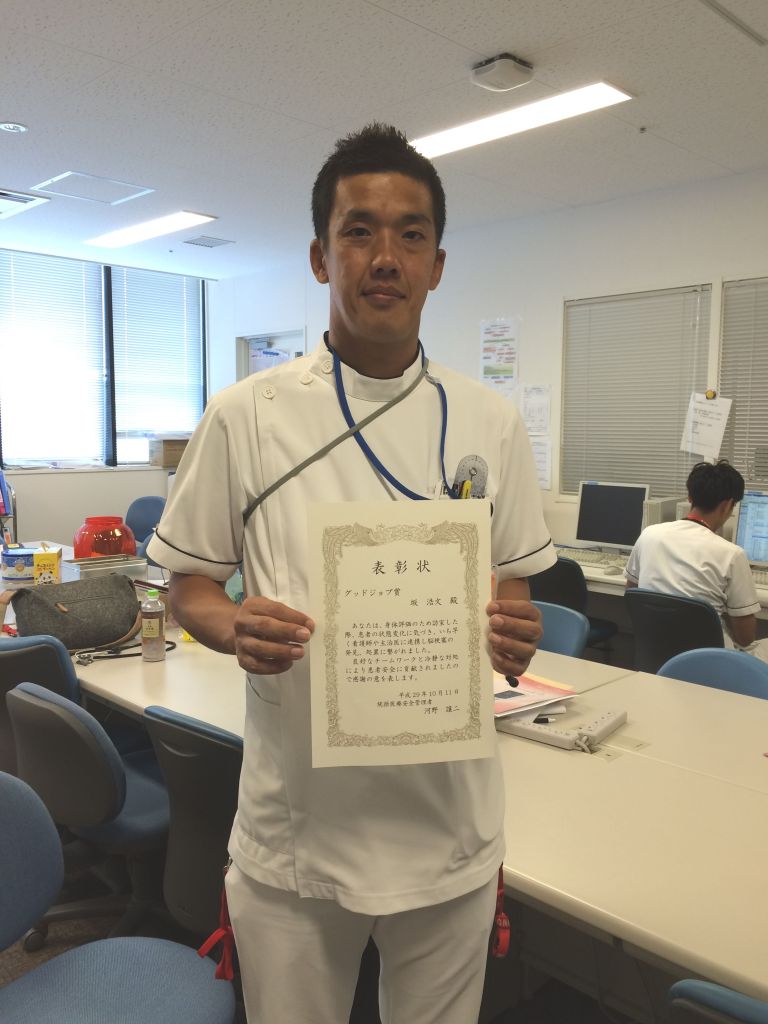 表彰状
グッドジョブ賞
坂 浩文 殿
あなたは、身体評価のため訪室した
際、患者の状態変化に気づき、いち早
く看護師や主治医に連携し脳梗塞の
発見、処置に繋がれました。
良好なチームワークと冷静な対処
により患者安全に貢献されましたの
で感謝の意を表します。
平成29年10月11日
統括医療安全管理者
河野 讓二